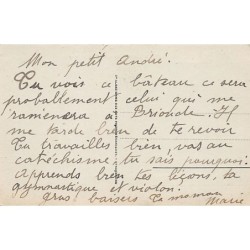 Mon petit André.
Tu vois ce bâteau ce sera
proballement celui qui me
ramènera à Brioude. Il
me tarde bien de te revoir
Tu travailles bien, vas au
catéchisme tu sais pourquoi.
Apprends bien tes leçons, ta
gymnastique et violon.
Gros baisers Ta maman
Marie